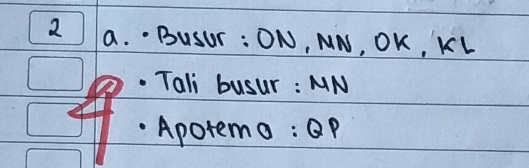 2 a. • Busur : ON, MN, OK, KL
• Tali busur : MN
• Apotema : QP